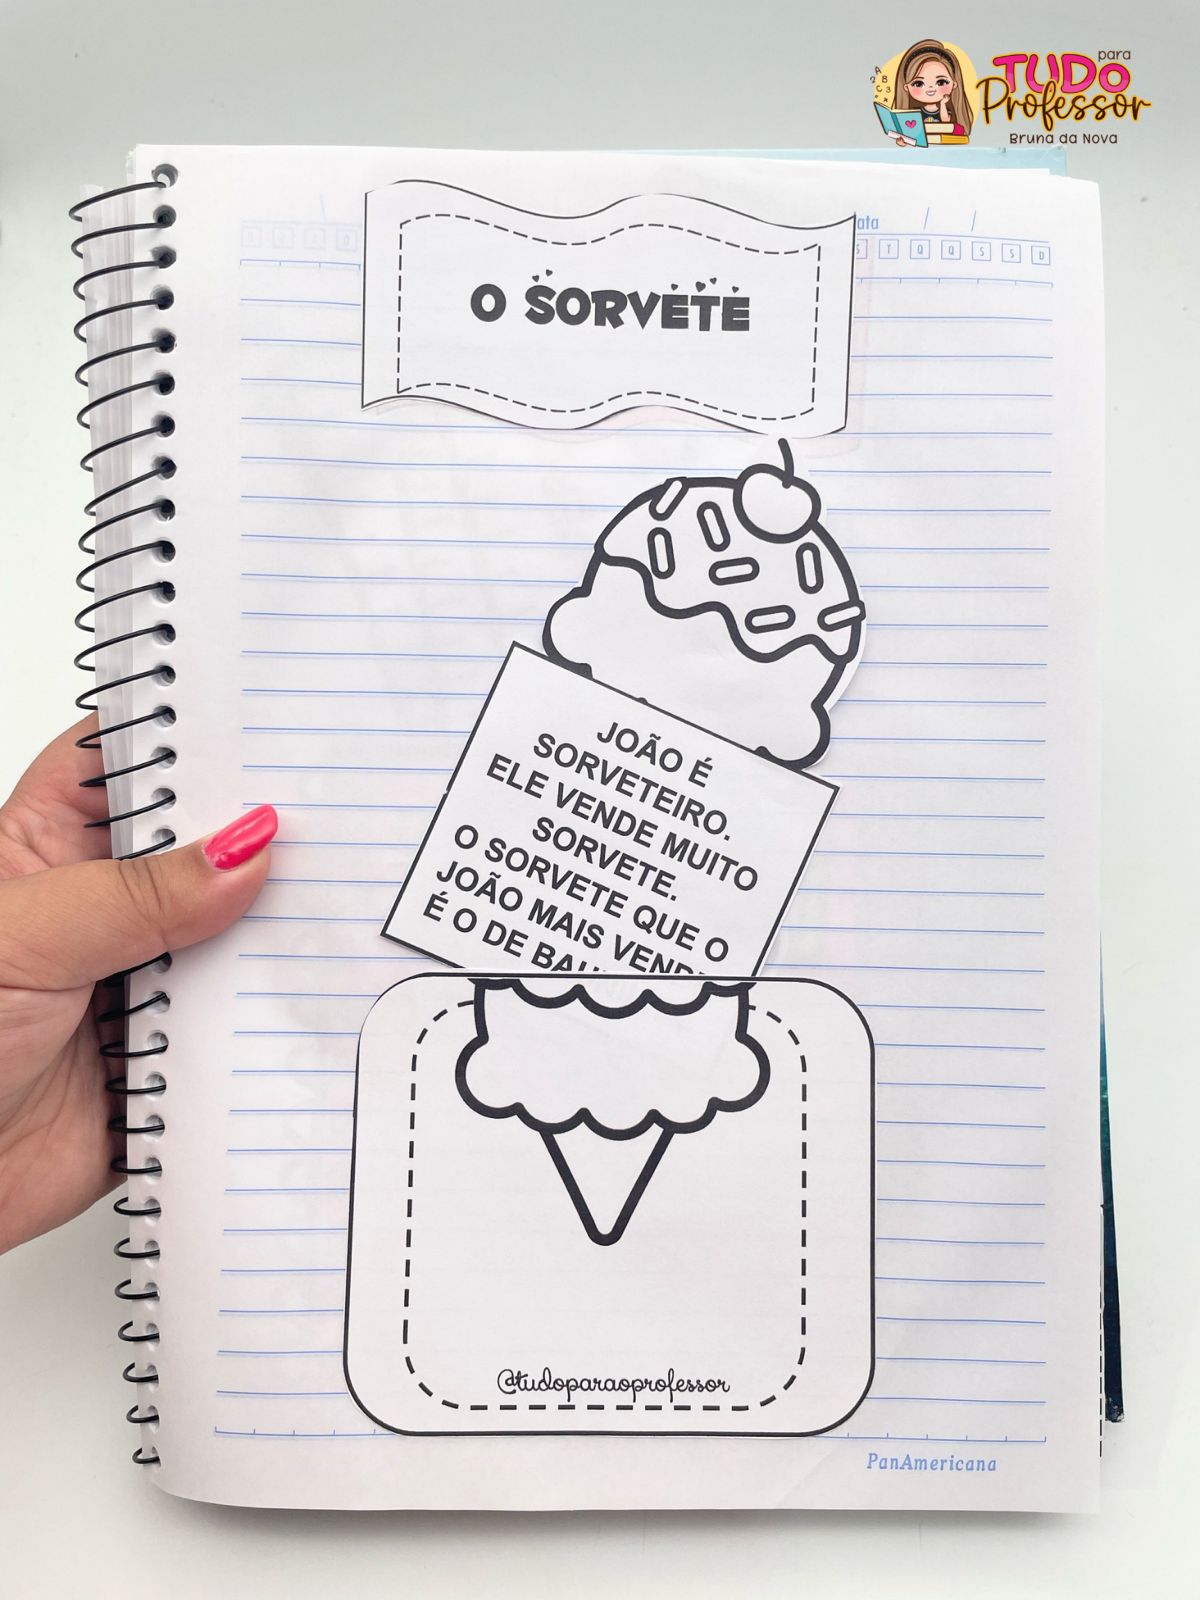 para
TUDO
Professor
Bruna da Nova
ata / /
S T Q Q S S D
O SORVETE
JOÃO É
SORVETEIRO.
ELE VENDE MUITO
SORVETE.
O SORVETE QUE O
JOÃO MAIS
É O DE
@tudoparaoprofessor
PanAmericana